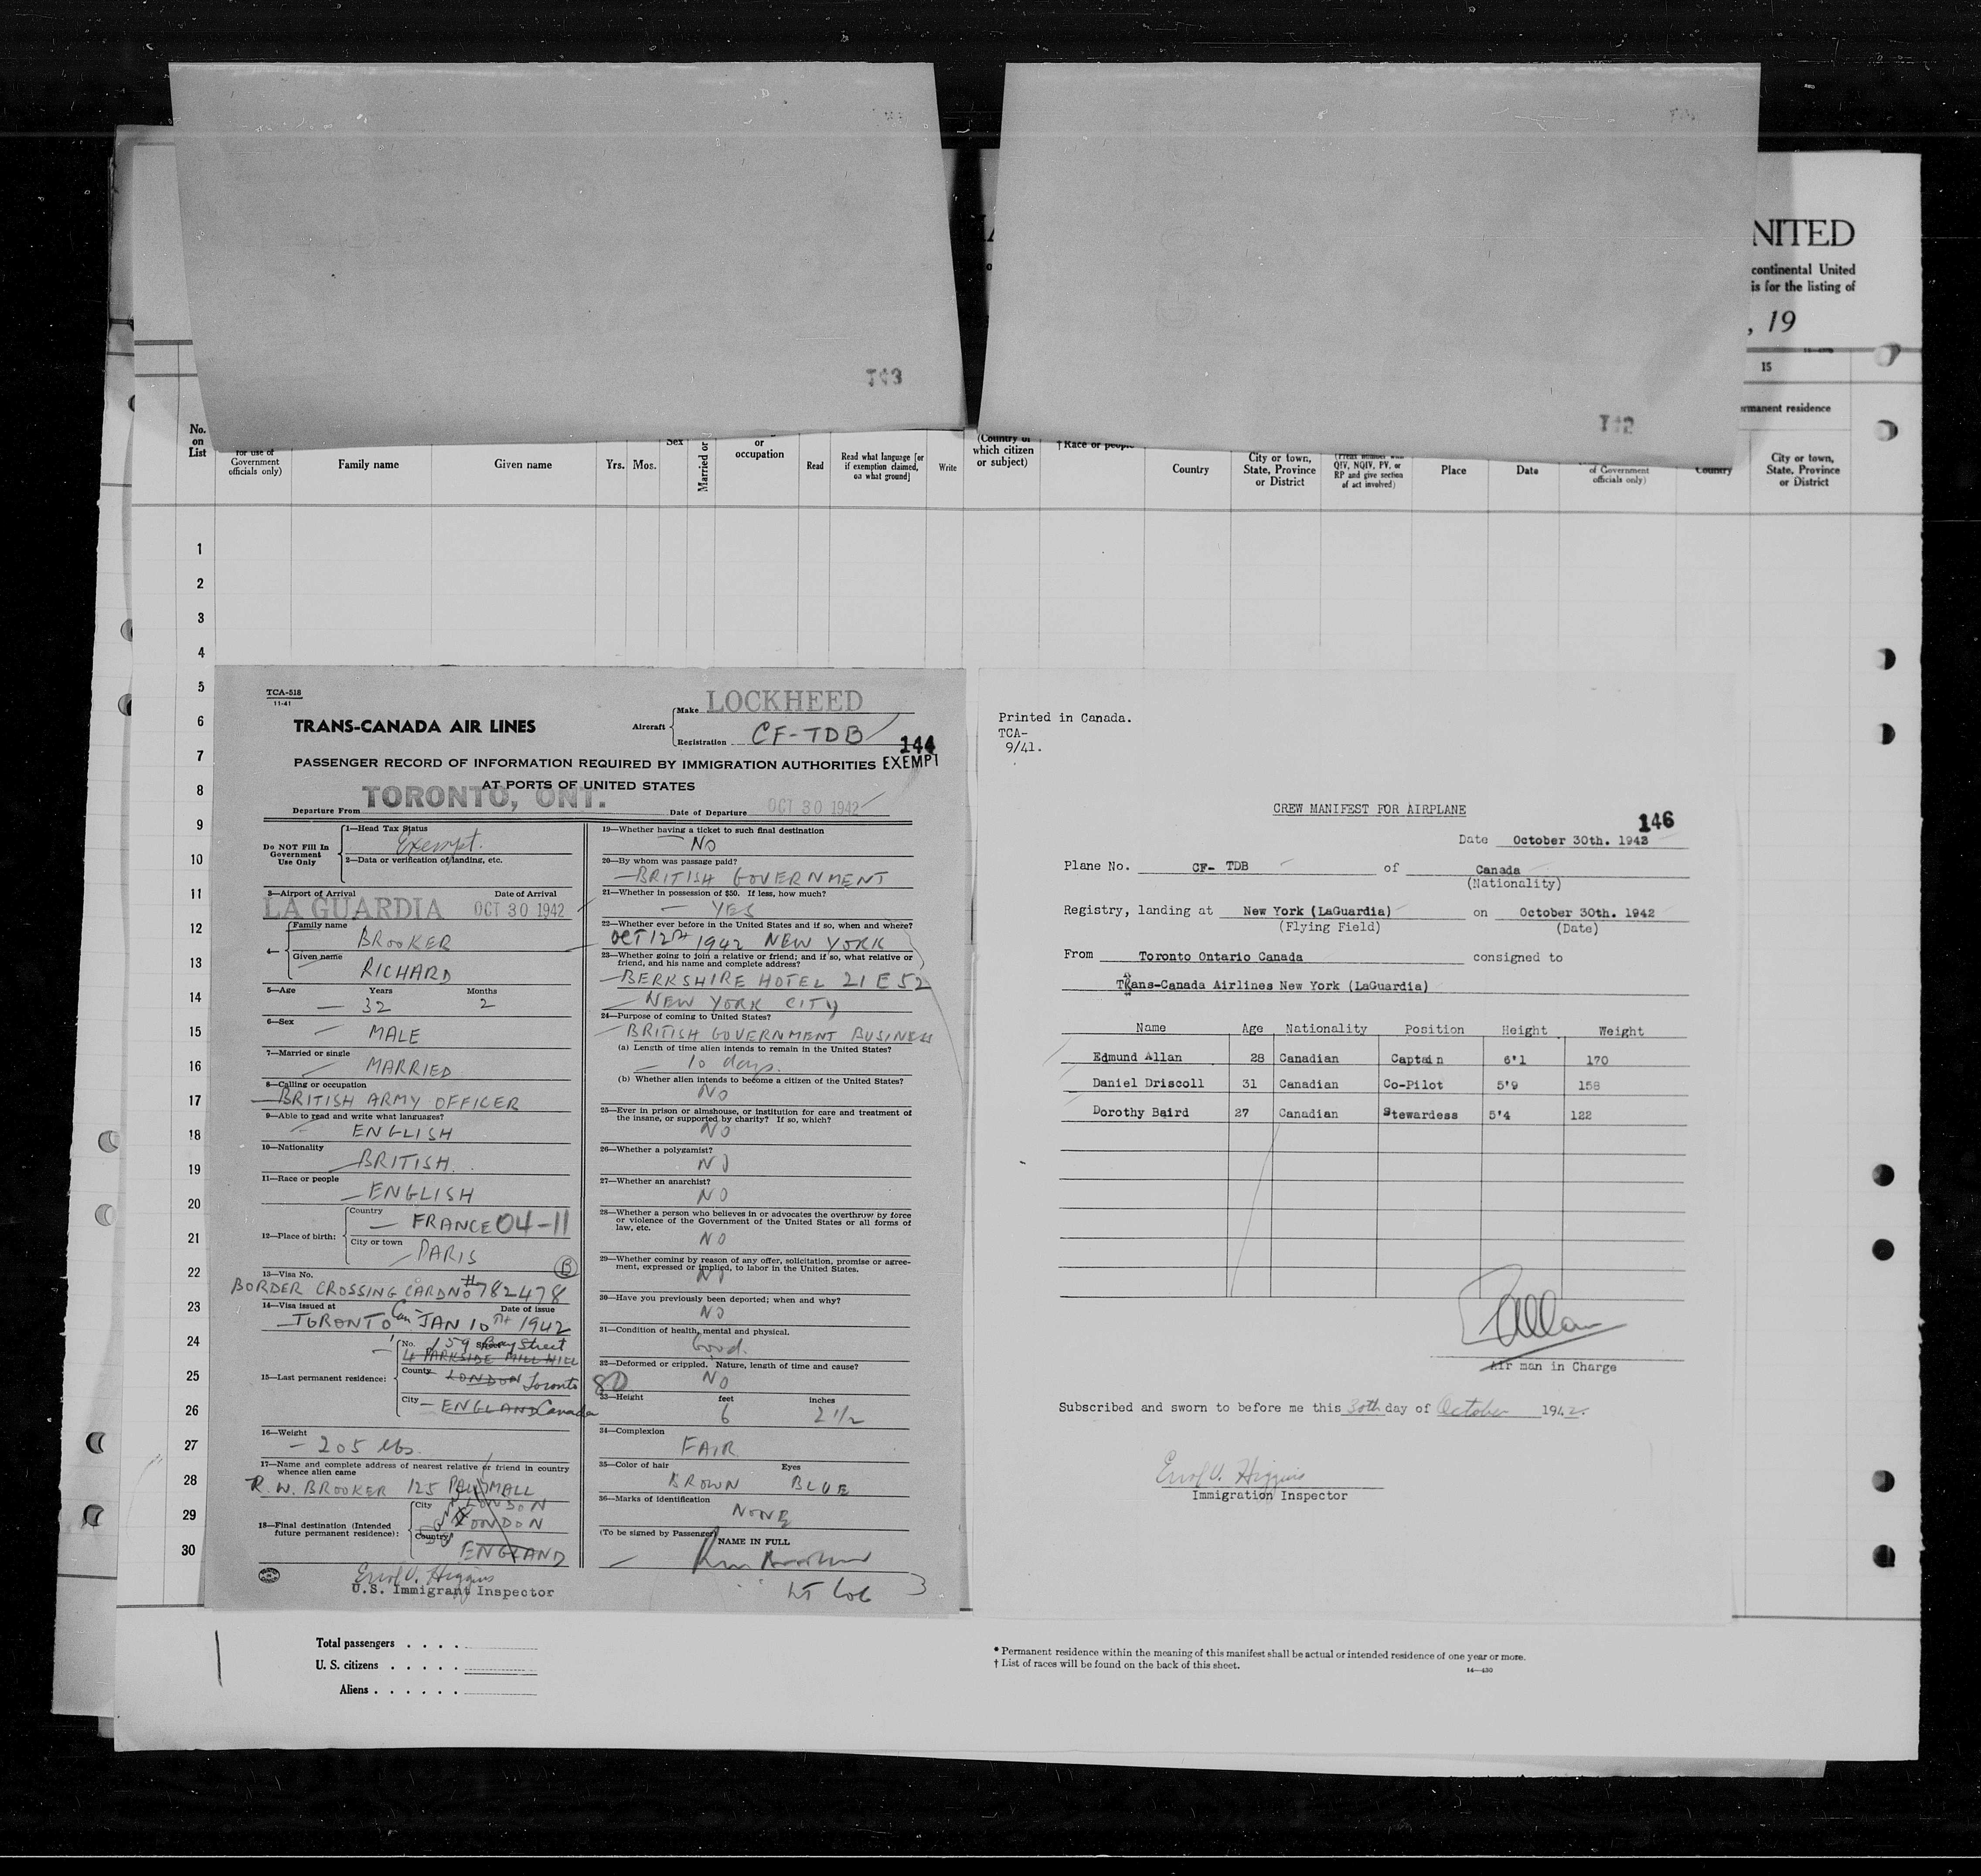 NITED
continental United
is for the listing of
, 19
143
142
15
permanent residence
No. on List
for use of Government officials only)
Family name
Given name
Yrs.
Mos.
Sex
Married or
or occupation
Read
Read what language [or if exemption claimed, on what ground]
Write
(Country of which citizen or subject)
† Race or people
Country
City or town, State, Province or District
QIV, NQIV, PV, or RP and give section of act involved)
Place
Date
of Government officials only)
Country
City or town, State, Province or District
1
2
3
4
5
6
7
8
9
10
11
12
13
14
15
16
17
18
19
20
21
22
23
24
25
26
27
28
29
30
TCA-518
11-41
TRANS-CANADA AIR LINES
Aircraft
Make LOCKHEED
Registration CF-TDB
144
PASSENGER RECORD OF INFORMATION REQUIRED BY IMMIGRATION AUTHORITIES EXEMPT
AT PORTS OF UNITED STATES
Departure From TORONTO, ONT. Date of Departure OCT 30 1942
Do NOT Fill In Government Use Only
1—Head Tax Status
Exempt.
2—Data or verification of landing, etc.
3—Airport of Arrival Date of Arrival
LA GUARDIA OCT 30 1942
4—
Family name
BROOKER
Given name
RICHARD
5—Age Years Months
32 2
6—Sex
MALE
7—Married or single
MARRIED
8—Calling or occupation
BRITISH ARMY OFFICER
9—Able to read and write what languages?
ENGLISH
10—Nationality
BRITISH.
11—Race or people
ENGLISH
12—Place of birth:
Country
FRANCE 04-11
City or town
PARIS
B
13—Visa No.
BORDER CROSSING CARD No 782478
14—Visa issued at Date of issue
TORONTO Can JAN 10TH 1942
15—Last permanent residence:
No. 159 Bay Street
4 PARKSIDE MILL HILL
County LONDON Toronto
City ENGLAND Canada
16—Weight
205 lbs.
17—Name and complete address of nearest relative or friend in country whence alien came
R. W. BROOKER 125 PALL MALL
LONDON
18—Final destination (Intended future permanent residence):
City
LONDON
Country
ENGLAND
Errol V. Higgins
U.S. Immigrant Inspector
19—Whether having a ticket to such final destination
NO
20—By whom was passage paid?
BRITISH GOVERNMENT
21—Whether in possession of $50. If less, how much?
YES
22—Whether ever before in the United States and if so, when and where?
OCT 12TH 1942 NEW YORK
23—Whether going to join a relative or friend; and if so, what relative or friend, and his name and complete address?
BERKSHIRE HOTEL 21 E 52
NEW YORK CITY
24—Purpose of coming to United States?
BRITISH GOVERNMENT BUSINESS
(a) Length of time alien intends to remain in the United States?
10 days.
(b) Whether alien intends to become a citizen of the United States?
NO
25—Ever in prison or almshouse, or institution for care and treatment of the insane, or supported by charity? If so, which?
NO
26—Whether a polygamist?
NO
27—Whether an anarchist?
NO
28—Whether a person who believes in or advocates the overthrow by force or violence of the Government of the United States or all forms of law, etc.
NO
29—Whether coming by reason of any offer, solicitation, promise or agreement, expressed or implied, to labor in the United States.
NO
30—Have you previously been deported; when and why?
NO
31—Condition of health, mental and physical.
Good.
32—Deformed or crippled. Nature, length of time and cause?
NO
33—Height feet inches
6 2 1/2
34—Complexion
FAIR
35—Color of hair Eyes
BROWN BLUE
36—Marks of identification
NONE
(To be signed by Passenger) NAME IN FULL
Lt Col
3
Printed in Canada.
TCA-
9/41.
CREW MANIFEST FOR AIRPLANE
146
Date October 30th. 1942
Plane No. CF- TDB of Canada
(Nationality)
Registry, landing at New York (LaGuardia) on October 30th. 1942
(Flying Field) (Date)
From Toronto Ontario Canada consigned to
Trans-Canada Airlines New York (LaGuardia)
Name Age Nationality Position Height Weight
Edmund Allan 28 Canadian Captain 6'1 170
Daniel Driscoll 31 Canadian Co-Pilot 5'9 158
Dorothy Baird 27 Canadian Stewardess 5'4 122
EAllan
Air man in Charge
Subscribed and sworn to before me this 30th day of October 1942.
Errol V. Higgins
Immigration Inspector
Total passengers . . . .
U. S. citizens . . . . .
Aliens . . . . . .
* Permanent residence within the meaning of this manifest shall be actual or intended residence of one year or more.
† List of races will be found on the back of this sheet.
14—430